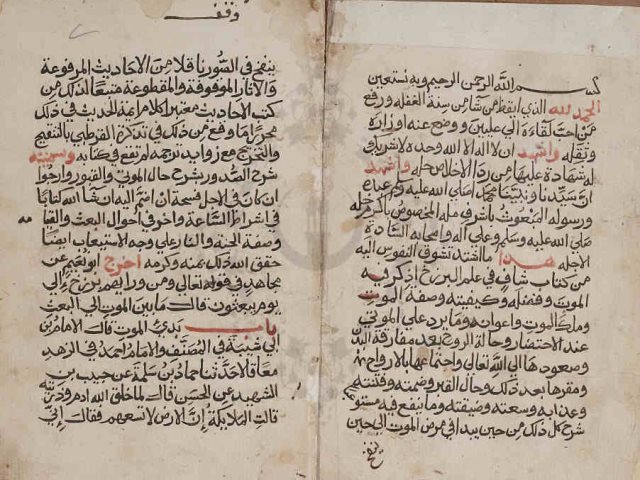 بسم الله الرحمن الرحيم وبه نستعين
الحمد لله الذي ايقظ من شا من سنة الغفله ورفع
من احب لقاءه الي عليين ووضع عنه اوزاره
وثقله واشهد ان لا اله الا الله وحده لا شريك
له شهادة عليها من ردا الاخلاص حله واشهد
ان سيدنا ونبينا محمدا صلى الله عليه وسلم
ورسوله المبعوث باشرف مله المخصوص باكرم خله
صلى الله عليه وسلم وعلى اله واصحابه السادة
الاجله هذا ما اشتد تشوف النفوس اليه
من كتاب شاف في علم البرزخ اذكر فيه
الموت وفضله وكيفيته وصفة الموت
وملك الموت واعوانه وما يرد على الموتي
عند الاحتضار وحالة الروح بعد مفارقة البدن
وصعودها الى الله تعالى واجتماعها بالارواح
ومقرها بعد ذلك وحال القبر وضمته وفتنته
وعذابه وسعته وضيقته وما ينفع فيه
شرح كل ذلك من حين يبدا في مرض الموت الى حين
ينفخ
وقف
ينفخ في الصور ناقلا من الاحاديث المرفوعة
والاثار الموقوفة والمقطوعة متتبعا لذلك من
كتب الاحاديث معتبرا كلام ايمة الحديث في ذلك
محررا ما وقع من ذلك في تذكرة القرطبي بالتنقيح
والتخريج مع زوايد ترجمه لم تقع في كتابه وسميته
شرح الصدور بشرح حال الموتى والقبور وارجوا
ان كان في الاجل فسحة ان اضم اليه ان شا الله كتابا
في اشراط الساعة واخر في احوال البعث والقيامه
وصفة الجنة والنار على وجه الاستيعاب ايضا
حقق الله ذلك بمنه وكرمه اخرج ابو نعيم عن
مجاهد في قوله تعالى ومن ورايهم برزخ إلي
يوم يبعثون قال ما بين الموت الي البعث
باب بدئ الموت قال الامام بن
ابي شيبة في المصنف والامام احمد في الزهد
معا قالا حدثنا حماد بن سلمة عن حبيب بن
الشهيد عن الحسن قال لما خلق الله ادم وذريته
قالت الملايكة إن الارض لا تسعهم فقال إني